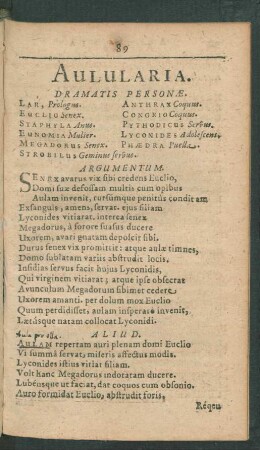 89
AULULARIA.
DRAMATIS PERSONÆ.
LAR, Prologus.
EUCLIO Senex.
STAPHYLA Anus.
EUNOMIA Mulier.
MEGADORUS Senex.
STROBILUS Geminus servus.
ANTHRAX Coquus.
CONGRIO Coquus.
PYTHODICUS Servus.
LYCONIDES Adolescens.
PHÆDRA Puella.
ARGUMENTUM.
SENEX avarus vix sibi credens Euclio,
Domi suæ defossam multis cum opibus
Aulam invenit, rursumque penitus conditam
Exsanguis, amens, servat. ejus filiam
Lyconides vitiarat. interea senex
Megadorus, à sorore suasus ducere
Uxorem, avari gnatam deposcit sibi.
Durus senex vix promittit: atque aulæ timens,
Domo sublatam variis abstrudit locis.
Insidias servus facit hujus Lyconidis,
Qui virginem vitiarat; atque ipse obsecrat
Avunculum Megadorum sibimet cedere
Uxorem amanti. per dolum mox Euclio
Quum perdidisset, aulam insperatò invenit,
Lætúsque natam collocat Lyconidi.
ALIUD.
AULAM repertam auri plenam domi Euclio
Vi summâ servat, miseris affectus modis.
Lyconides istius vitiat filiam.
Volt hanc Megadorus indotatam ducere.
Lubénsque ut faciat, dat coquos cum obsonio.
Auro formidat Euclio, abstrudit foris,